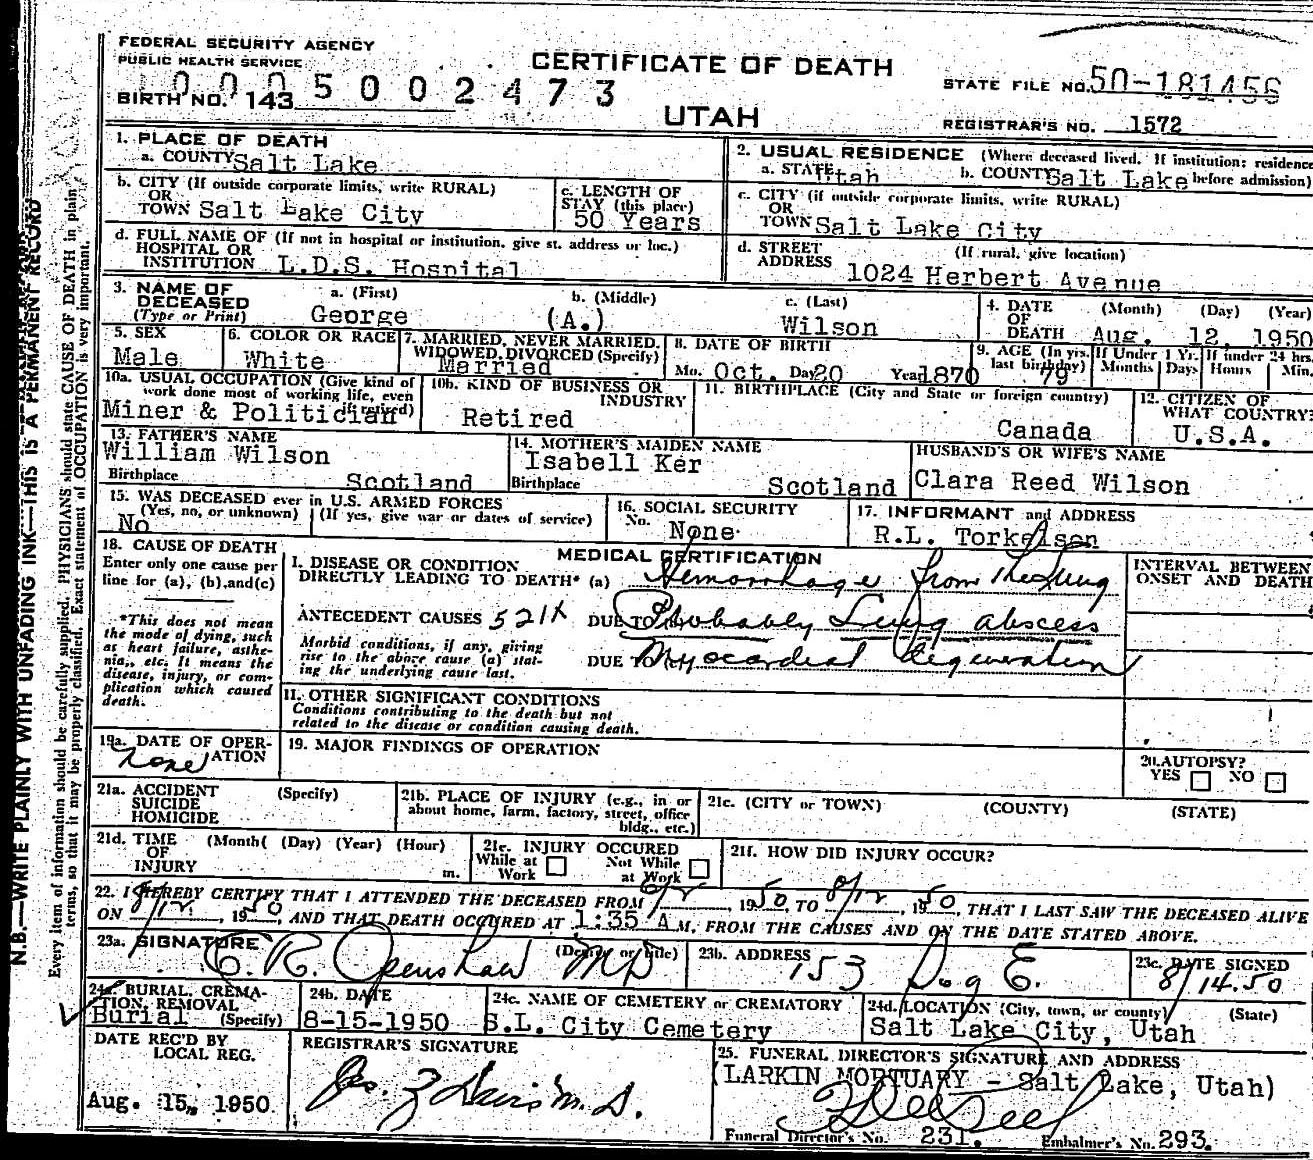 FEDERAL SECURITY AGENCY
PUBLIC HEALTH SERVICE
CERTIFICATE OF DEATH
STATE FILE NO. 50-181456
0005002473
BIRTH NO. 143
UTAH
REGISTRAR'S NO. 1572
1. PLACE OF DEATH
a. COUNTY Salt Lake
2. USUAL RESIDENCE (Where deceased lived. If institution: residence
a. STATE Utah b. COUNTY Salt Lake before admission)
b. CITY (If outside corporate limits, write RURAL)
OR
TOWN Salt Lake City
c. LENGTH OF
STAY (this place)
50 Years
c. CITY (if outside corporate limits, write RURAL)
OR
TOWN Salt Lake City
d. FULL NAME OF (If not in hospital or institution, give st. address or loc.)
HOSPITAL OR
INSTITUTION L.D.S. Hospital
d. STREET (If rural, give location)
ADDRESS 1024 Herbert Avenue
3. NAME OF DECEASED
(Type or Print)
a. (First) b. (Middle) c. (Last)
George (A.) Wilson
4. DATE OF DEATH (Month) (Day) (Year)
Aug. 12, 1950
5. SEX
Male
6. COLOR OR RACE
White
7. MARRIED, NEVER MARRIED,
WIDOWED, DIVORCED (Specify)
Married
8. DATE OF BIRTH
Mo. Oct. Day 20 Year 1870
9. AGE (In yrs. last birthday) 79
If Under 1 Yr. Months Days
If under 24 hrs. Hours Min.
10a. USUAL OCCUPATION (Give kind of
work done most of working life, even
if retired)
Miner & Politician
10b. KIND OF BUSINESS OR
INDUSTRY
Retired
11. BIRTHPLACE (City and State or foreign country)
Canada
12. CITIZEN OF
WHAT COUNTRY?
U.S.A.
13. FATHER'S NAME
William Wilson
Birthplace Scotland
14. MOTHER'S MAIDEN NAME
Isabell Ker
Birthplace Scotland
HUSBAND'S OR WIFE'S NAME
Clara Reed Wilson
15. WAS DECEASED ever in U.S. ARMED FORCES
(Yes, no, or unknown) (If yes, give war or dates of service)
No
16. SOCIAL SECURITY
No. None
17. INFORMANT and ADDRESS
R.L. Torkelson
18. CAUSE OF DEATH
Enter only one cause per
line for (a), (b), and (c)
*This does not mean
the mode of dying, such
as heart failure, asthe-
nia, etc. It means the
disease, injury, or com-
plication which caused
death.
MEDICAL CERTIFICATION
I. DISEASE OR CONDITION
DIRECTLY LEADING TO DEATH* (a) Hemorrhage from the Lung
ANTECEDENT CAUSES 521X DUE TO Probably Lung abscess
Morbid conditions, if any, giving
rise to the above cause (a) stat-
ing the underlying cause last.
DUE Myocardial degeneration
INTERVAL BETWEEN
ONSET AND DEATH
II. OTHER SIGNIFICANT CONDITIONS
Conditions contributing to the death but not
related to the disease or condition causing death.
19a. DATE OF OPER-
ATION
None
19. MAJOR FINDINGS OF OPERATION
20. AUTOPSY?
YES NO
21a. ACCIDENT (Specify)
SUICIDE
HOMICIDE
21b. PLACE OF INJURY (e.g., in or
about home, farm, factory, street, office
bldg., etc.)
21c. (CITY or TOWN) (COUNTY) (STATE)
21d. TIME (Month( (Day) (Year) (Hour)
OF
INJURY m.
21e. INJURY OCCURED
While at Work Not While at Work
21f. HOW DID INJURY OCCUR?
22. I HEREBY CERTIFY THAT I ATTENDED THE DECEASED FROM 6/12, 1950, TO 8/12, 1950, THAT I LAST SAW THE DECEASED ALIVE
ON 8/12, 1950, AND THAT DEATH OCCURED AT 1:35 A M, FROM THE CAUSES AND ON THE DATE STATED ABOVE.
23a. SIGNATURE (Degree or title)
C. R. Openshaw MD
23b. ADDRESS
153 Dog E.
23c. DATE SIGNED
8/14.50
24a. BURIAL, CREMA-
TION, REMOVAL
Burial (Specify)
24b. DATE
8-15-1950
24c. NAME OF CEMETERY OR CREMATORY
S.L. City Cemetery
24d. LOCATION (City, town, or county) (State)
Salt Lake City, Utah
DATE REC'D BY
LOCAL REG.
Aug. 15, 1950
REGISTRAR'S SIGNATURE
25. FUNERAL DIRECTOR'S SIGNATURE AND ADDRESS
(LARKIN MORTUARY - Salt Lake, Utah)
Funeral Director's No. 231. Embalmer's No. 293.
N.B.—WRITE PLAINLY WITH UNFADING INK—THIS IS A PERMANENT RECORD
Every item of information should be carefully supplied. PHYSICIANS should state CAUSE OF DEATH in plain
terms, so that it may be properly classified. Exact statement of OCCUPATION is very important.